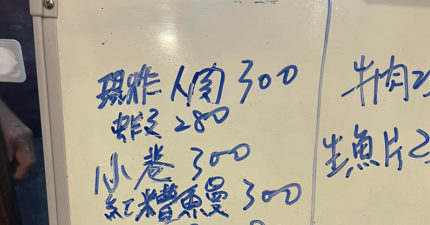 現炸人肉 300
蝦 280
小卷 300
紅糟鰻 300
牛肉 2
生魚片 2